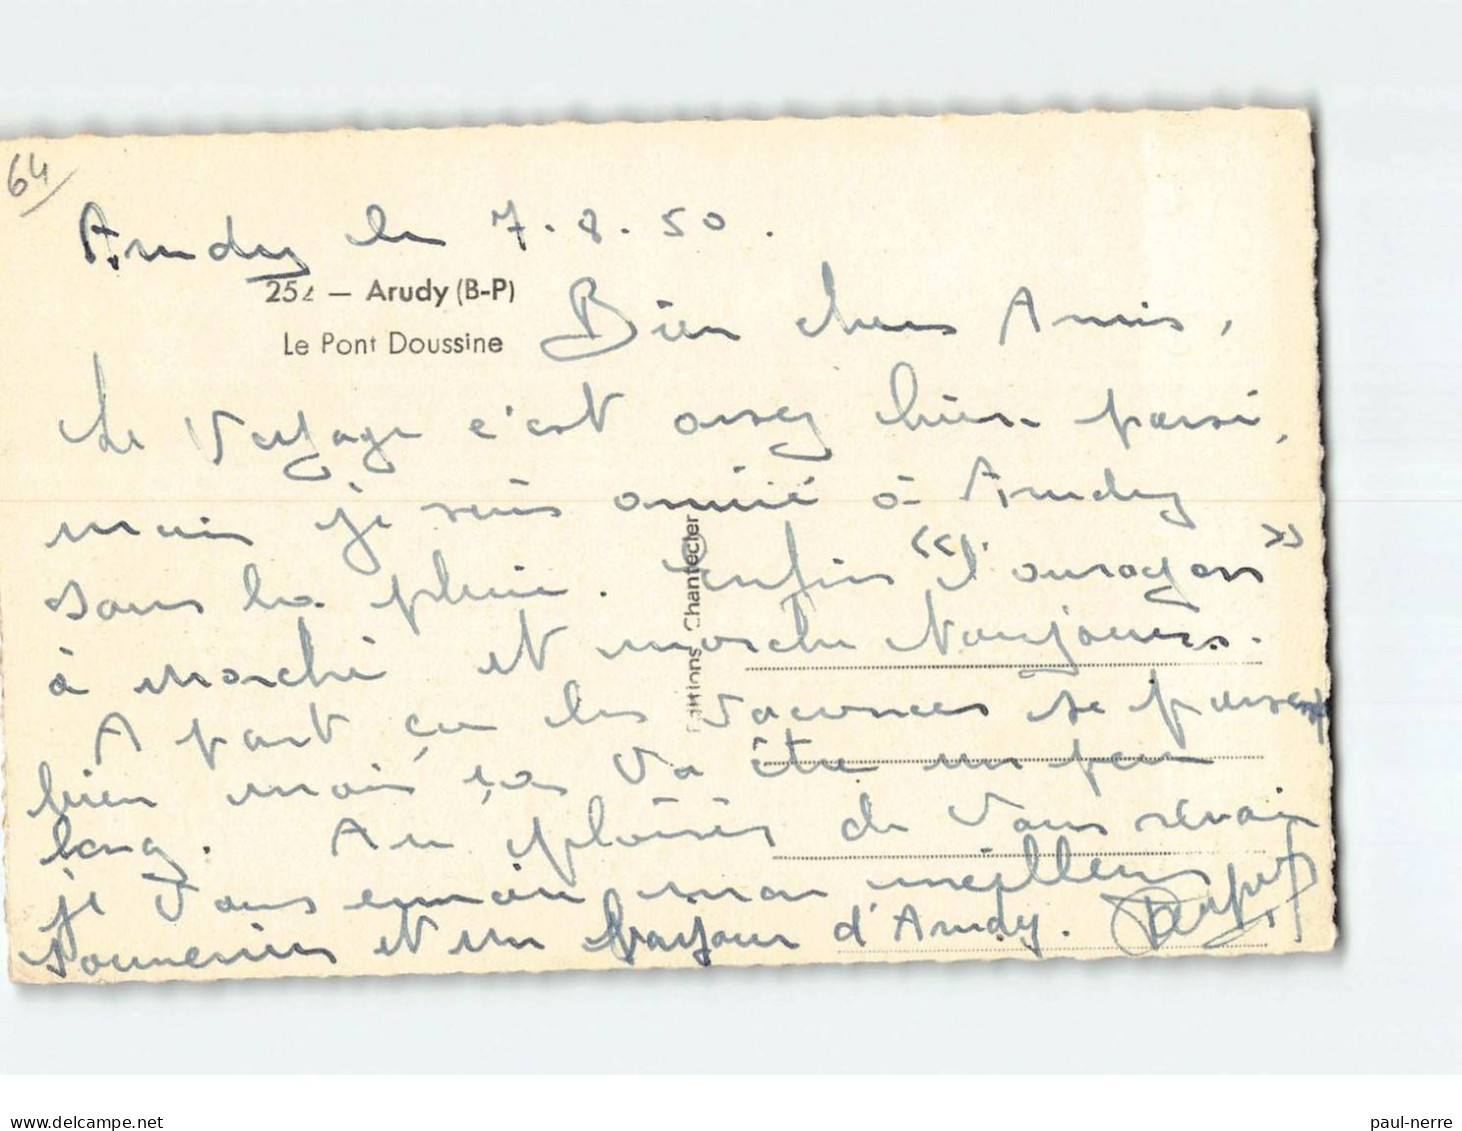 64
Arudy le 7.8.50.
252 — Arudy (B-P)
Le Pont Doussine
Bien chers Amis,
Le Voyage c'est assez bien passé,
mais je suis arrivé à Arudy
sous la pluie. Enfin « l'ouragan »
à marché et marche toujours.
A part ça les vacances se passent
bien mais ça va être un peu
long. Au plaisir de Vous revoir
je Vous envoie mon meilleur
souvenir et un bonjour d'Arudy.
Editions Chantecler
paul-nerre